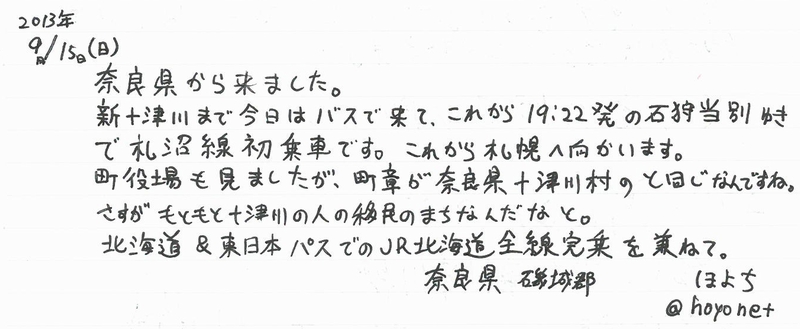 2013年
9月/15日(日)
奈良県から来ました。
新十津川まで今日はバスで来て、これから19:22発の石狩当別ゆき
で札沼線初乗車です。これから札幌へ向かいます。
町役場も見ましたが、町章が奈良県十津川村のと同じなんですね。
さすがもともと十津川の人の移民のまちなんだなと。
北海道&東日本パスでのJR北海道全線完乗を兼ねて。
奈良県 磯城郡 ほよち
@hoyonet